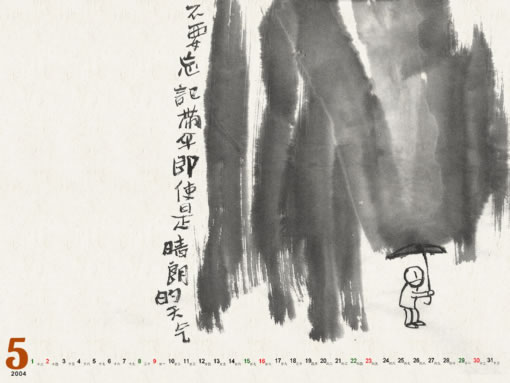 不要忘記帶伞即使是晴朗的天气
5
2004
1 2 3 4 5 6 7 8 9 10 11 12 13 14 15 16 17 18 19 20 21 22 23 24 25 26 27 28 29 30 31